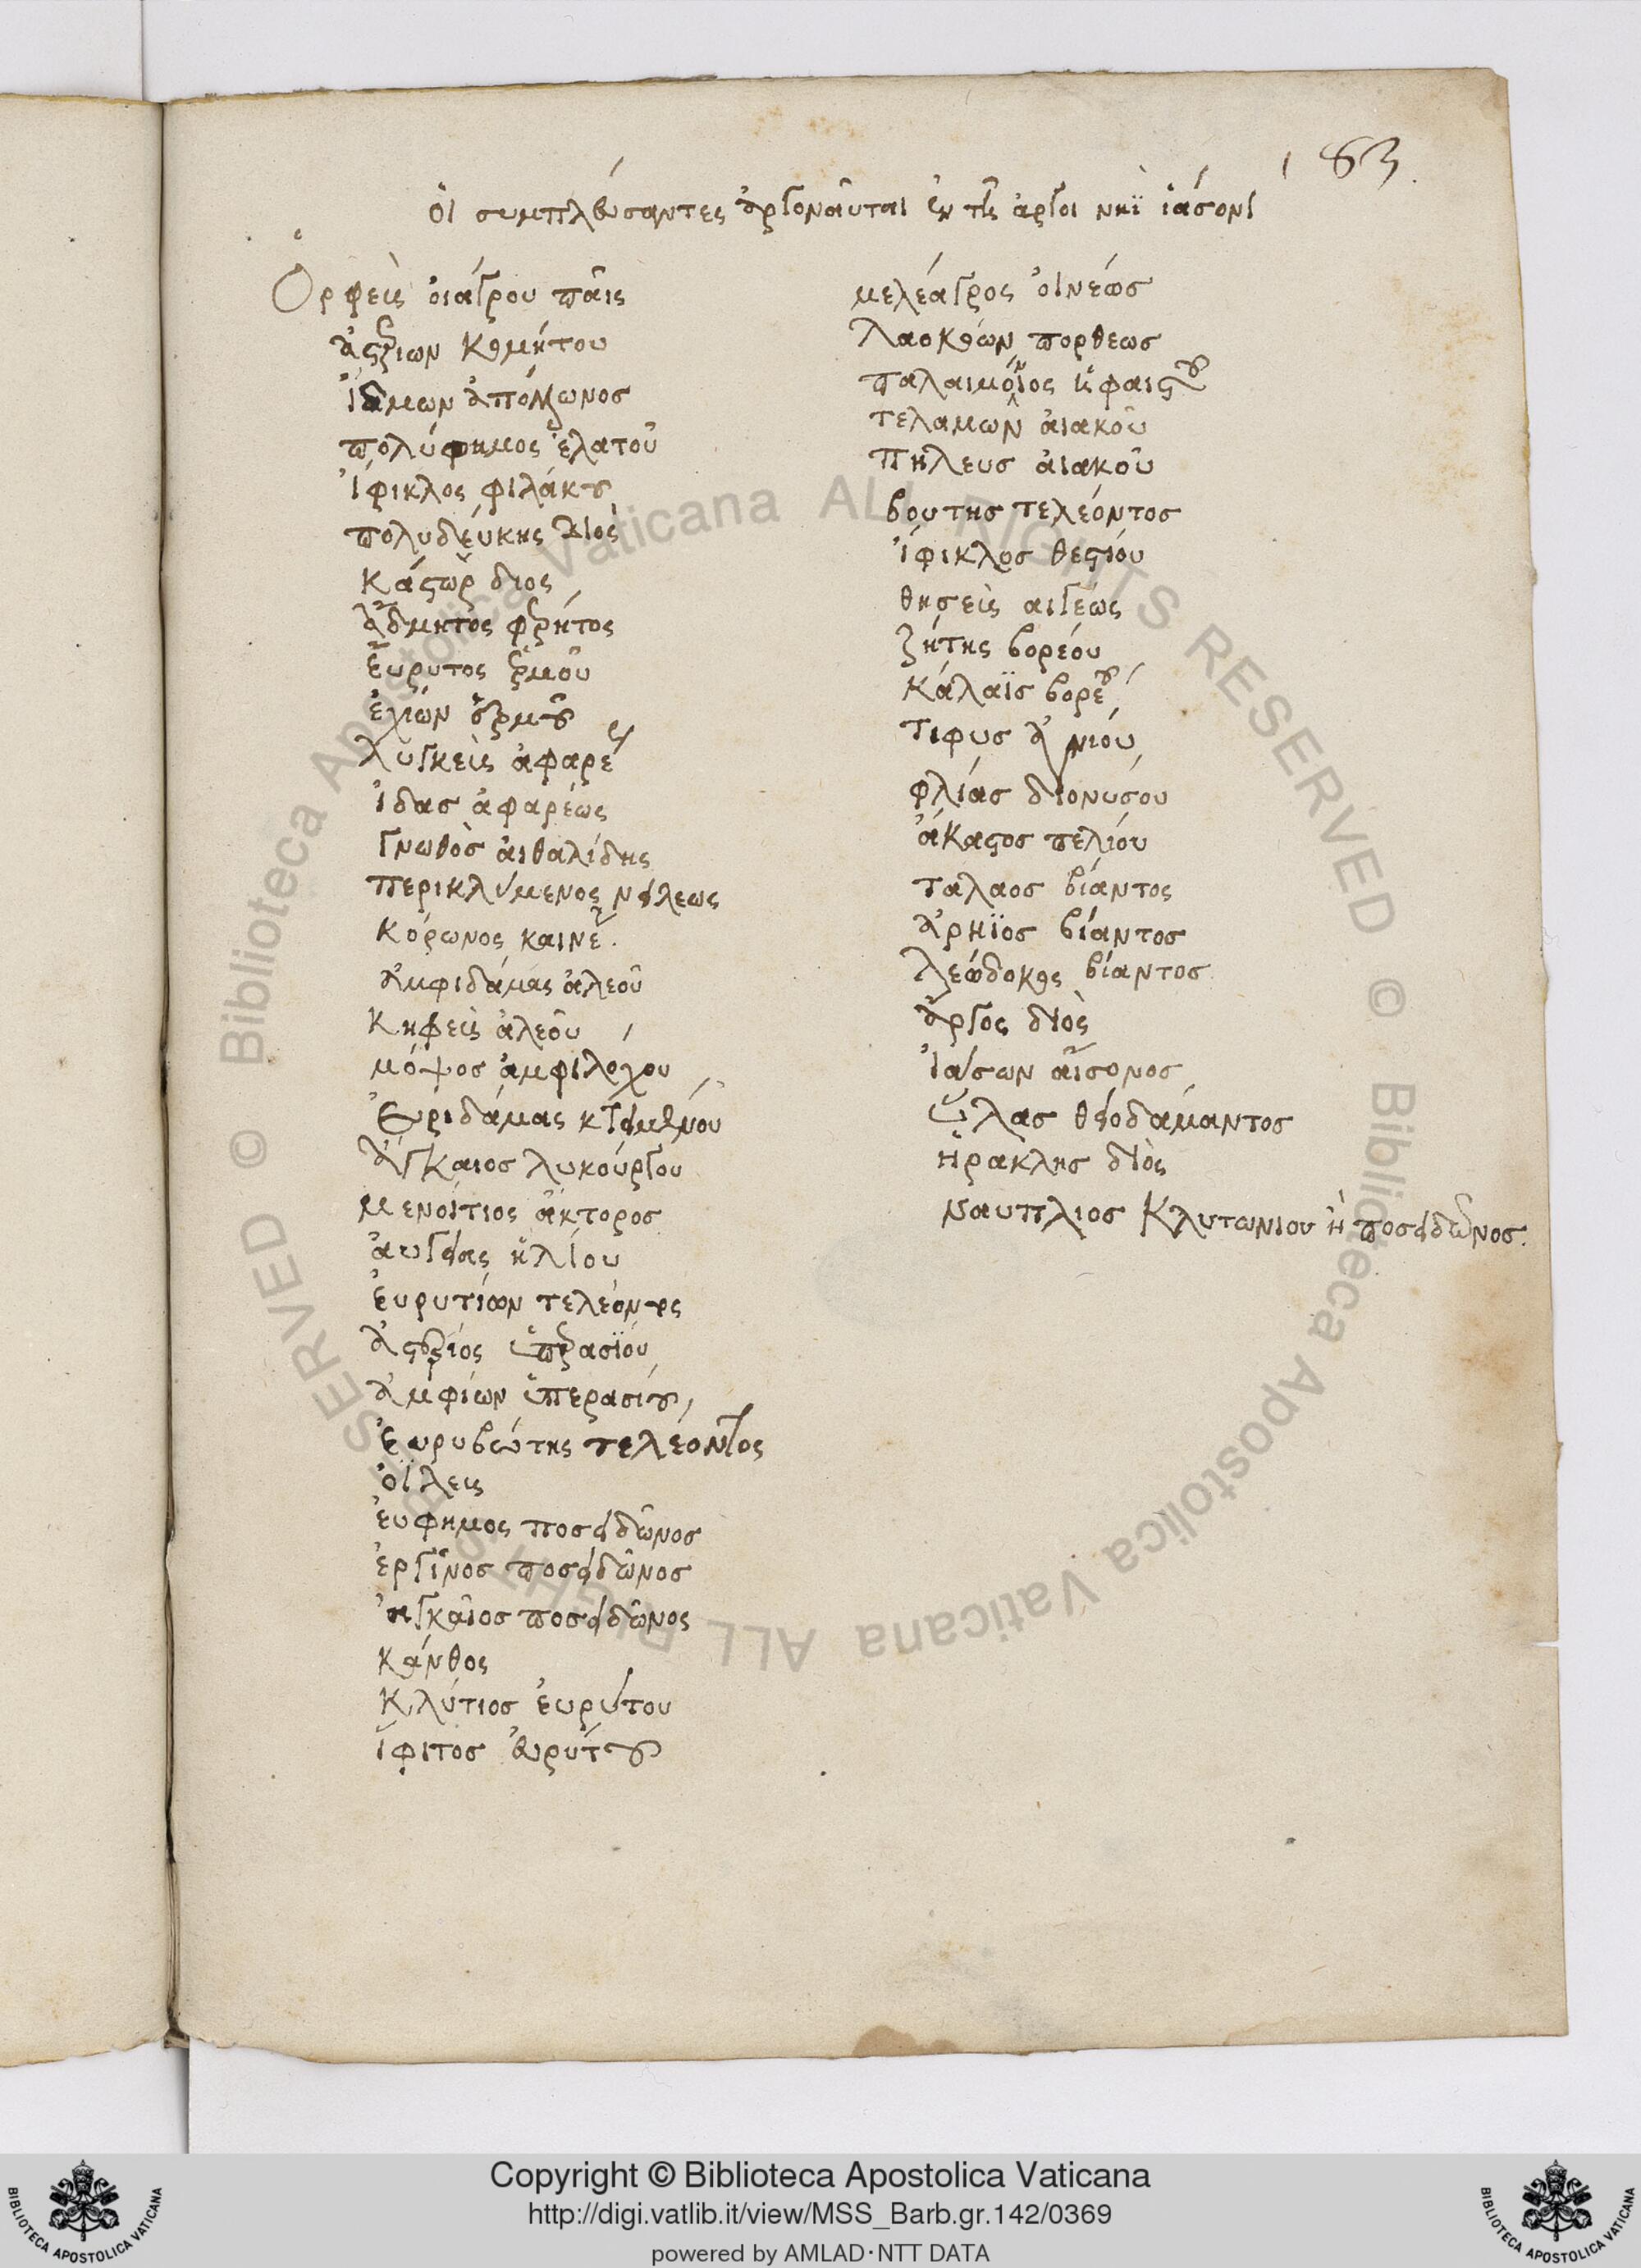 183.
Οἱ συμπλεύσαντες ἀργοναῦται ἐν τῆ ἀργοι νηῒ ἰάσονι
Ὀρφεὺς ὀιάγρου παῖς
ἀστερίων κομήτου
Ἴδμων ἀπόλλωνος
πολύφημος ἐλατοῦ
Ἴφικλος φιλάκου
πολυδέυκης Διὸς
Κάστωρ διος
ἄδμητὸς φέρητος
Ἔυρυτος ἑρμοῦ
ἐχιών ἑρμοῦ
λυγκεὺς ἀφαρέως
ἴδας ἀφαρέως
Γνωθὸς ἀιθαλίδης
περικλύμενος νήλεως
Κόρωνος καινέως
ἀμφιδάμας ἀλεοῦ
Κηφεὺς ἀλεοῦ
μόψος ἀμφιλόχου
Ἐυριδάμας κτιμένου
ἀγκαιος λυκούργου
Μενοίτιος ἄκτορος
ἀυγείας ἡλίου
ἐυρυτίων τελέοντος
ἀστέριος ὑπερασϊόυ
ἀμφίων ὑπερασίου
Ἐυρυβώτης τελέοντος
ὀϊλευς
ἐυφημος ποσειδῶνος
ἐργῖνος ποσειδῶνος
ἀγκαῖος ποσειδῶνος
Κάνθος
Κλύτιος ἐυρύτου
ἴφιτος ἐυρύτου
μελέαγρος ὀινέως
Λαοκόων πορθεως
παλαιμόνιος ἡφαιστου
τελαμῶν ἀιακοῦ
Πηλευς ἀιακοῦ
βουτης τελέοντος
Ἴφικλος θεστίου
θησεὺς αιγέως
ζήτης βορέου
Κάλαϊς βορέου
Τιφυς ἁγνιόυ
φλίας διονύσου
ἄκαστος πελίου
ταλαος βίαντος
ἀρηϊος βίαντος
λεώδοκος βίαντος
ἄργος διὸς
Ἰάσων αἴσονος
Ὕλας θειοδάμαντος
Ἡρακλης διὸς
Ναυπλιος Κλυτωνιου ἢ ποσειδῶνος.
Copyright © Biblioteca Apostolica Vaticana
http://digi.vatlib.it/view/MSS_Barb.gr.142/0369
powered by AMLAD·NTT DATA